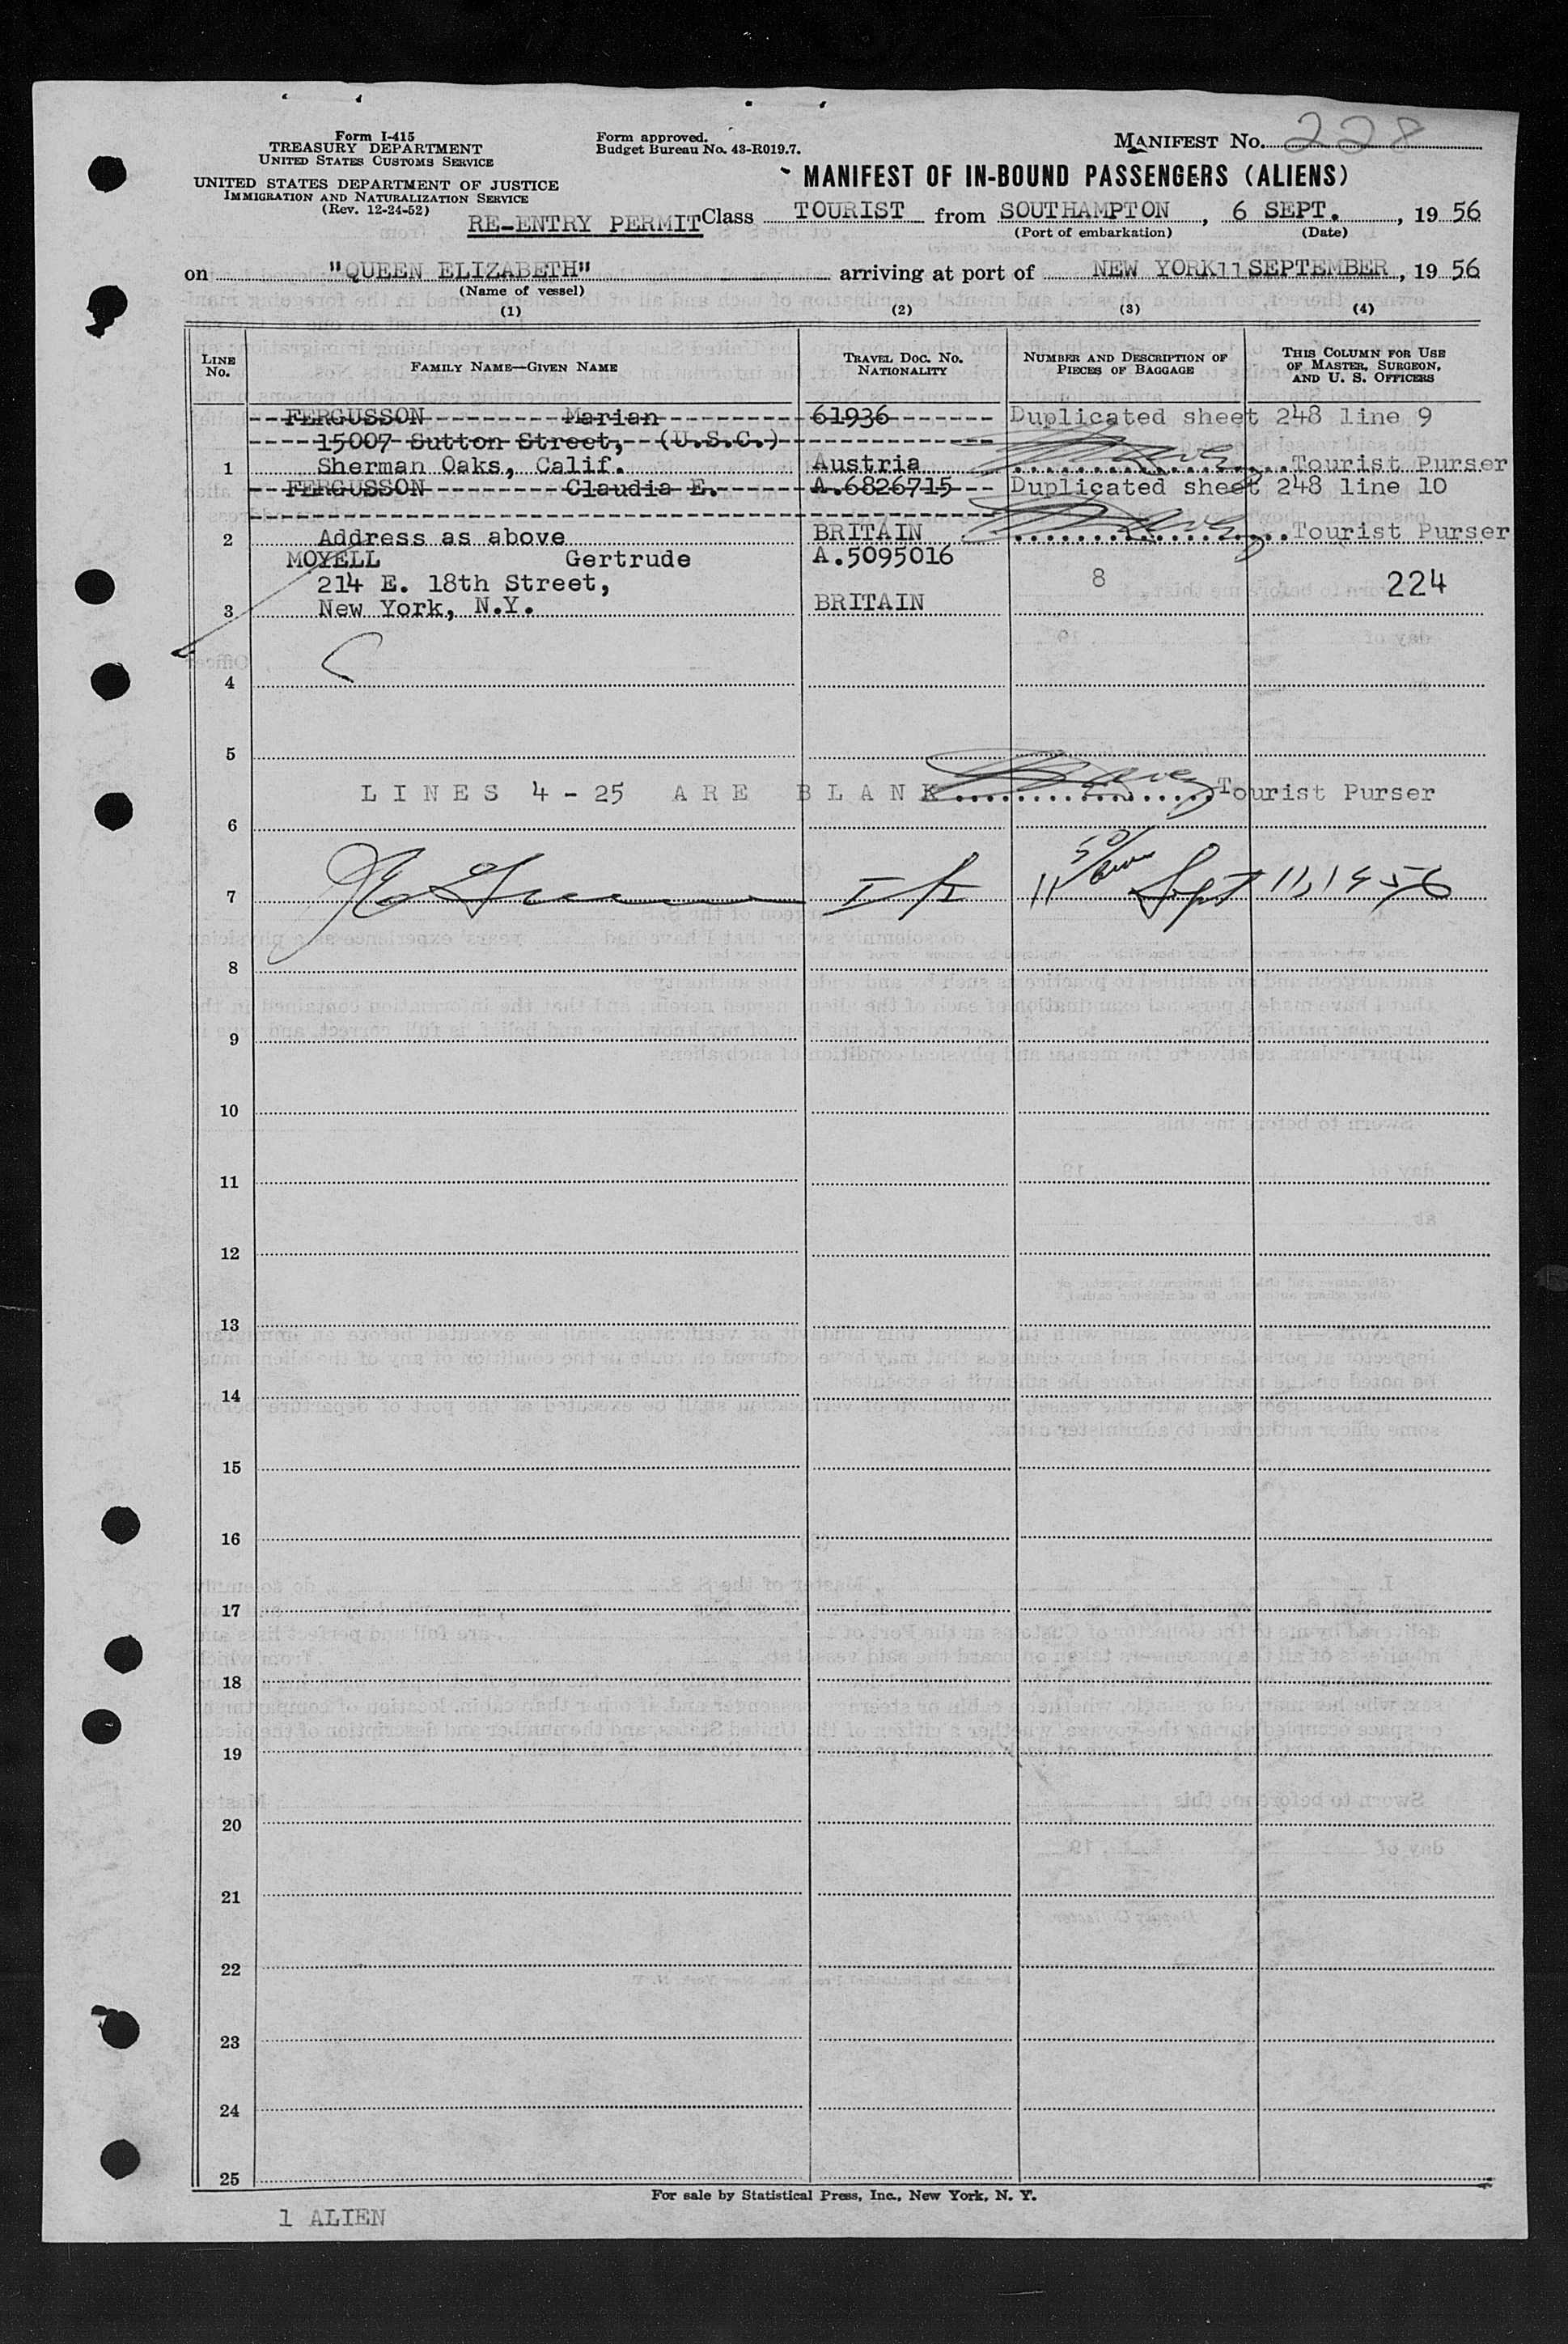 Form I-415
TREASURY DEPARTMENT
UNITED STATES CUSTOMS SERVICE
UNITED STATES DEPARTMENT OF JUSTICE
IMMIGRATION AND NATURALIZATION SERVICE
(Rev. 12-24-52)
Form approved.
Budget Bureau No. 43-R019.7.
MANIFEST No. 228
MANIFEST OF IN-BOUND PASSENGERS (ALIENS)
RE-ENTRY PERMIT Class TOURIST from SOUTHAMPTON, 6 SEPT., 19 56
(Port of embarkation) (Date)
on "QUEEN ELIZABETH" arriving at port of NEW YORK 11 SEPTEMBER, 19 56
(Name of vessel)
(1) (2) (3) (4)
LINE No. FAMILY NAME—GIVEN NAME TRAVEL DOC. NO. NATIONALITY NUMBER AND DESCRIPTION OF PIECES OF BAGGAGE THIS COLUMN FOR USE OF MASTER, SURGEON, AND U. S. OFFICERS
FERGUSSON Marian 61936 Duplicated sheet 248 line 9
15007 Sutton Street, (U.S.C.)
1 Sherman Oaks, Calif. Austria Tourist Purser
FERGUSSON Claudia E. A.6826715 Duplicated sheet 248 line 10
2 Address as above BRITAIN Tourist Purser
MOYELL Gertrude A.5095016
214 E. 18th Street, 8 224
3 New York, N.Y. BRITAIN
4
5
LINES 4-25 ARE BLANK Tourist Purser
6
7 11 50/am Sept 11, 1956
8
9
10
11
12
13
14
15
16
17
18
19
20
21
22
23
24
25
For sale by Statistical Press, Inc., New York, N. Y.
1 ALIEN